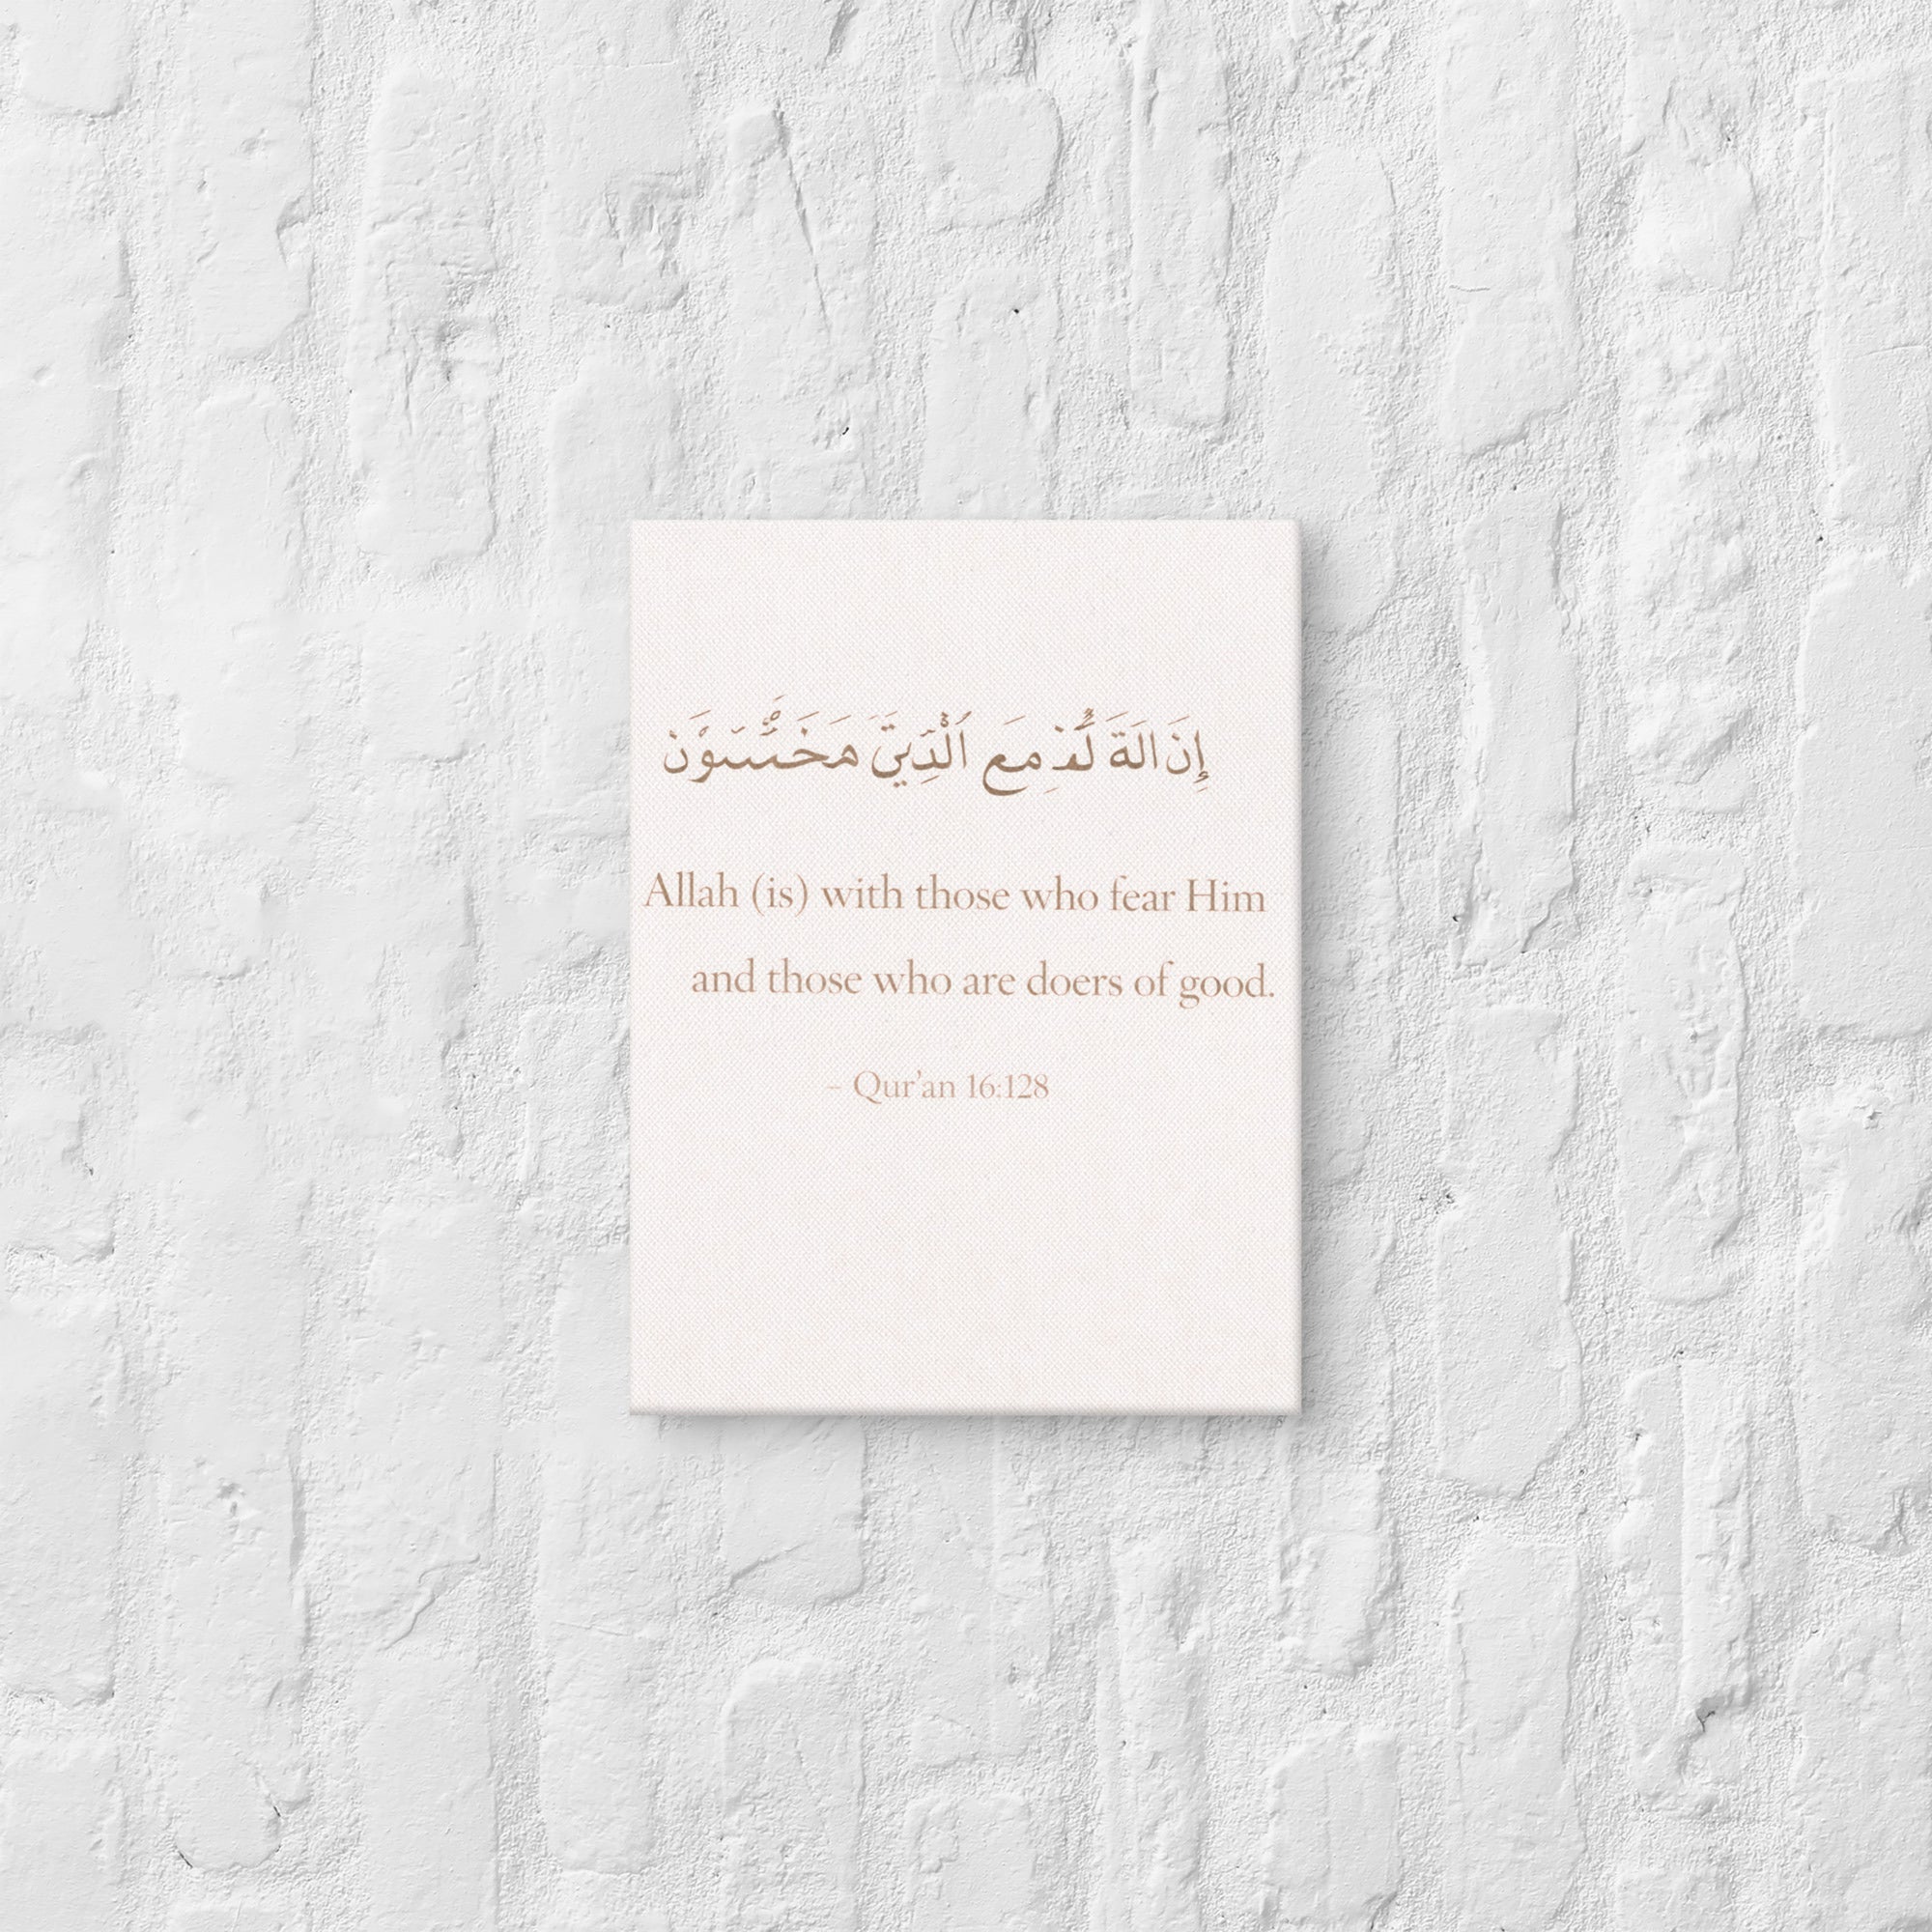 إِنَ الَةَ مَع ٱلَّذِينَ
Allah (is) with those who fear Him
and those who are doers of good.
– Qur’an 16:128